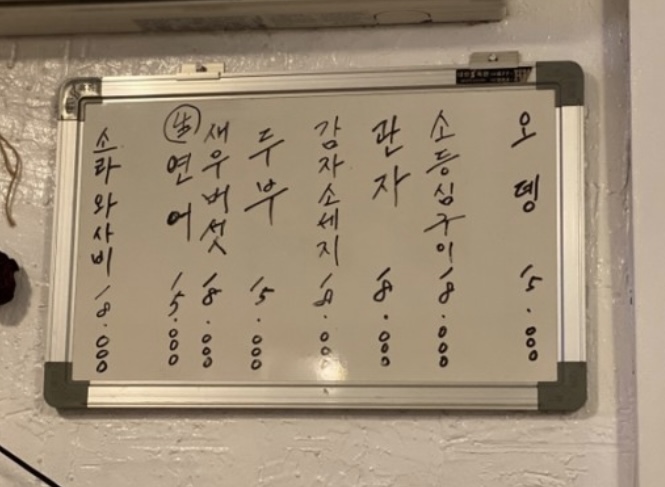 오뎅 15.000
소등심구이 18.000
관자 18.000
감자소세지 18.000
두부 15.000
새우버섯 18.000
生 연어 15.000
소라와사비 18.000